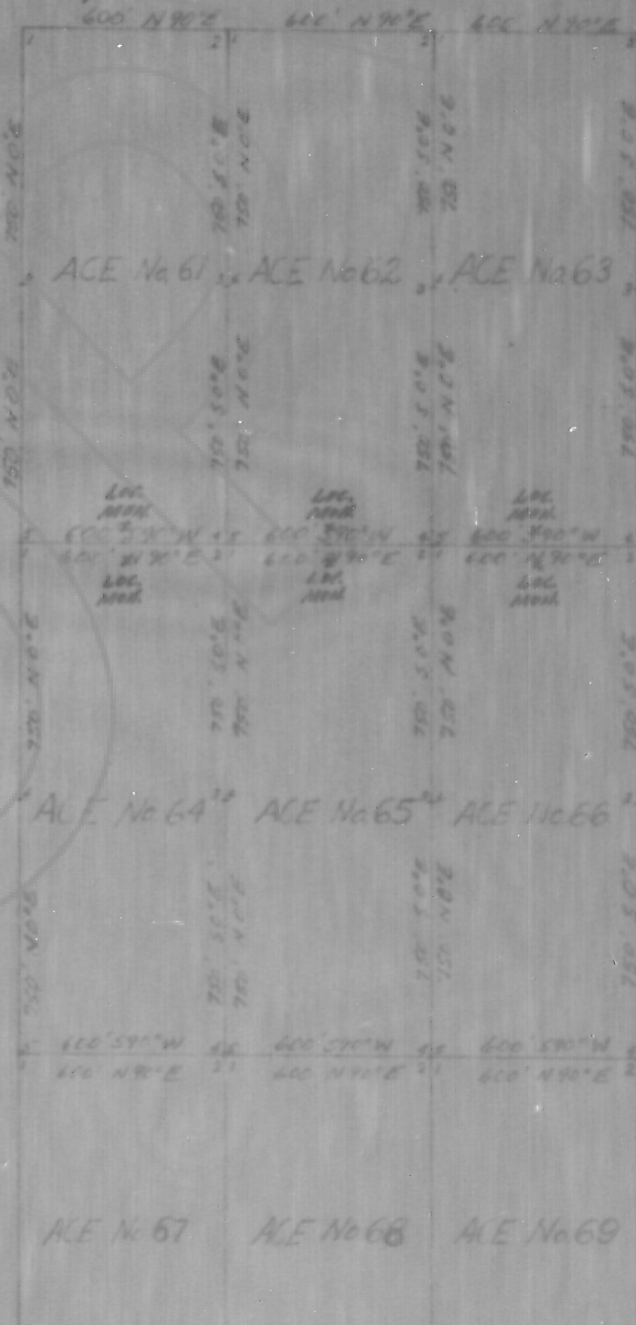 600' N 90°E 600' N 90°E 600' N 90°E
1 2 1 2 1 2
750' N 0°E 750' S 0°E 750' N 0°E 750' S 0°E 750' N 0°E 750' S 0°E
ACE No 61 ACE No 62 ACE No 63
750' N 0°E 750' S 0°E 750' N 0°E 750' S 0°E 750' N 0°E 750' S 0°E
LOC. LOC. LOC.
MON. MON. MON.
600' S90°W 600' S90°W 600' S90°W
600' N 90°E 600' N 90°E 600' N 90°E
LOC. LOC. LOC.
MON. MON. MON.
750' N 0°E 750' S 0°E 750' N 0°E 750' S 0°E 750' N 0°E 750' S 0°E
ACE No 64 ACE No 65 ACE No 66
750' N 0°E 750' S 0°E 750' N 0°E 750' S 0°E 750' N 0°E 750' S 0°E
600' S90°W 600' S90°W 600' S90°W
600' N 90°E 600' N 90°E 600' N 90°E
ACE No 67 ACE No 68 ACE No 69